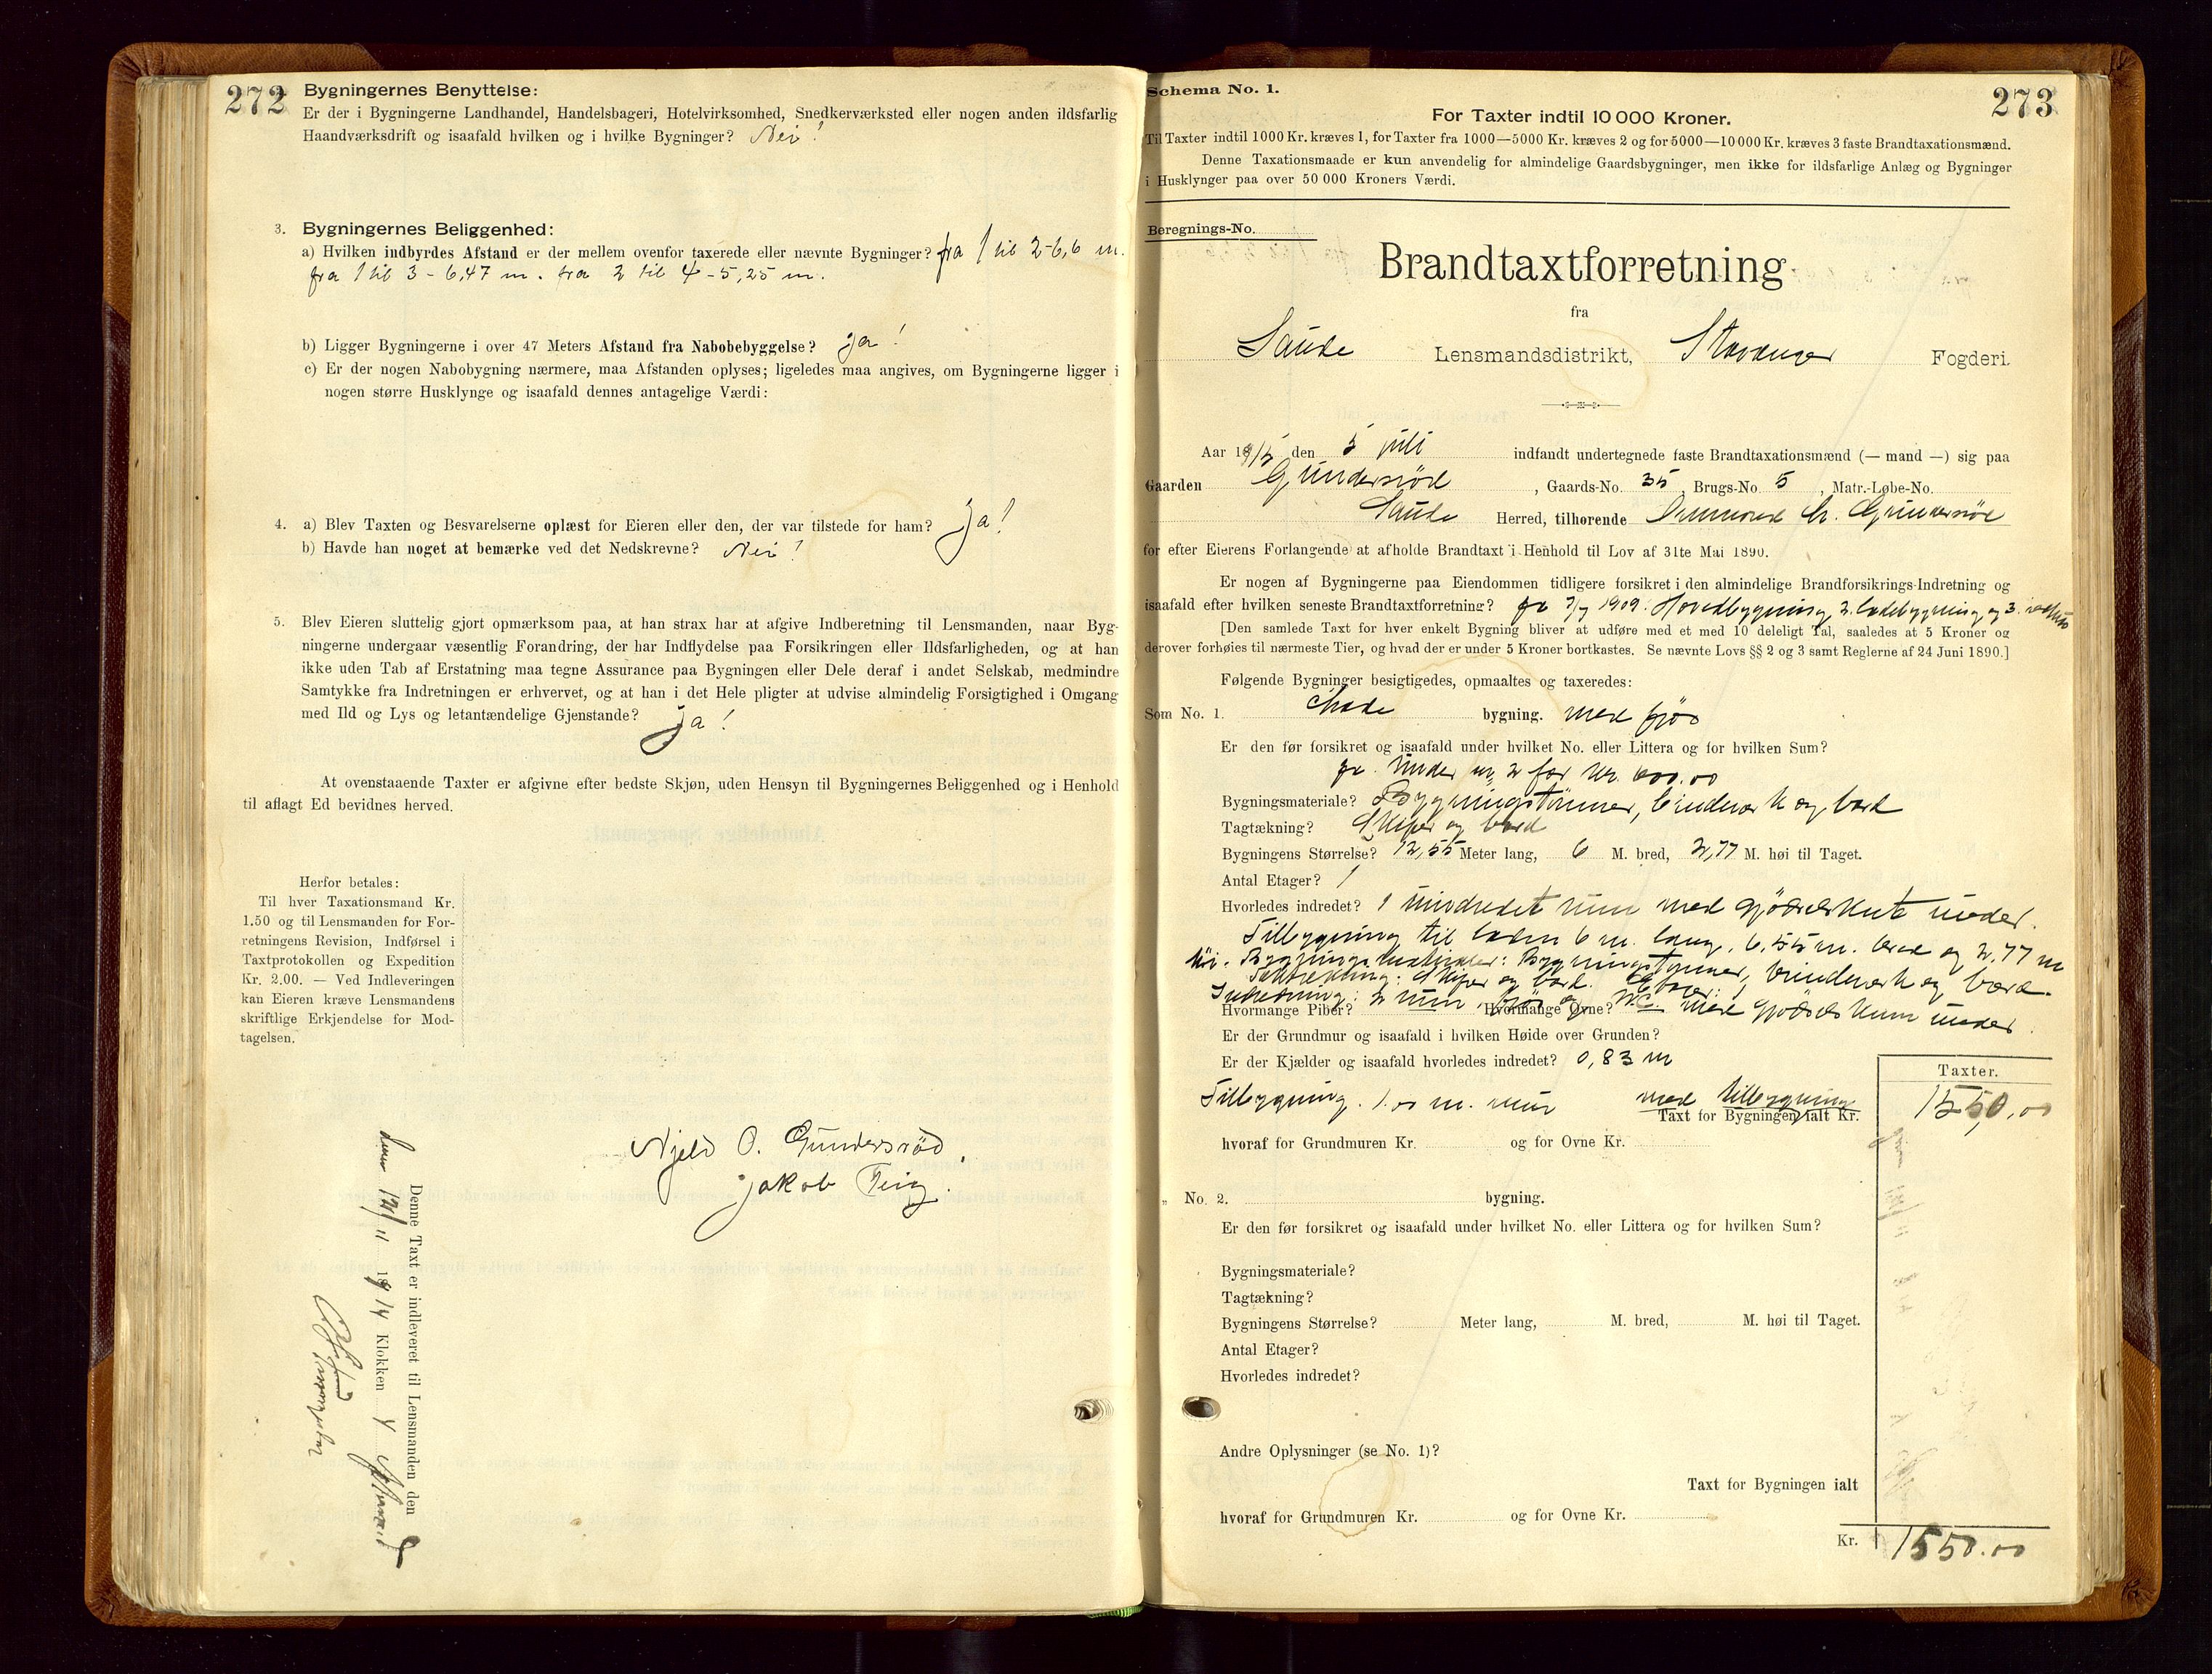 272
Bygningernes Benyttelse:
Er der i Bygningerne Landhandel, Handelsbageri, Hotelvirksomhed, Snedkerværksted eller nogen anden ildsfarlig
Haandværksdrift og isaafald hvilken og i hvilke Bygninger? Nei!
3. Bygningernes Beliggenhed:
a) Hvilken indbyrdes Afstand er der mellem ovenfor taxerede eller nævnte Bygninger? fra 1 til 2-6,6 m.
fra 1 til 3 - 6,47 m. fra 2 til 4 - 5,25 m.
b) Ligger Bygningerne i over 47 Meters Afstand fra Nabobebyggelse? ja!
c) Er der nogen Nabobygning nærmere, maa Afstanden oplyses; ligeledes maa angives, om Bygningerne ligger i
nogen større Husklynge og isaafald dennes antagelige Værdi:
4. a) Blev Taxten og Besvarelserne oplæst for Eieren eller den, der var tilstede for ham? Ja!
b) Havde han noget at bemærke ved det Nedskrevne? Nei!
5. Blev Eieren sluttelig gjort opmærksom paa, at han strax har at afgive Indberetning til Lensmanden, naar Byg-
ningerne undergaar væsentlig Forandring, der har Indflydelse paa Forsikringen eller Ildsfarligheden, og at han
ikke uden Tab af Erstatning maa tegne Assurance paa Bygningen eller Dele deraf i andet Selskab, medmindre
Samtykke fra Indretningen er erhvervet, og at han i det Hele pligter at udvise almindelig Forsigtighed i Omgang
med Ild og Lys og letantændelige Gjenstande? ja!
At ovenstaaende Taxter er afgivne efter bedste Skjøn, uden Hensyn til Bygningernes Beliggenhed og i Henhold
til aflagt Ed bevidnes herved.
Herfor betales:
Til hver Taxationsmand Kr.
1.50 og til Lensmanden for For-
retningens Revision, Indførsel i
Taxtprotokollen og Expedition
Kr. 2.00. — Ved Indleveringen
kan Eieren kræve Lensmandens
skriftlige Erkjendelse for Mod-
tagelsen.
Njeld O. Gundersrød.
Jakob Teig.
Denne Taxt er indleveret til Lensmanden den
den 12/11 1914 Klokken
Schema No. 1.
273
For Taxter indtil 10 000 Kroner.
Til Taxter indtil 1000 Kr. kræves 1, for Taxter fra 1000—5000 Kr. kræves 2 og for 5000—10 000 Kr. kræves 3 faste Brandtaxationsmænd.
Denne Taxationsmaade er kun anvendelig for almindelige Gaardsbygninger, men ikke for ildsfarlige Anlæg og Bygninger
i Husklynger paa over 50 000 Kroners Værdi.
Beregnings-No.
Brandtaxtforretning
fra
Saude Lensmandsdistrikt, Stavanger Fogderi.
Aar 1915 den 5 juli indfandt undertegnede faste Brandtaxationsmænd (— mand —) sig paa
Gaarden Gundersrød, Gaards-No. 35, Brugs-No 5, Matr.-Løbe-No.
Saude Herred, tilhørende Gundersrød
for efter Eierens Forlangende at afholde Brandtaxt i Henhold til Lov af 31te Mai 1890.
Er nogen af Bygningerne paa Eiendommen tidligere forsikret i den almindelige Brandforsikrings-Indretning og
isaafald efter hvilken seneste Brandtaxtforretning? ja 7/7 1909. Hovedbygning, 2. ladebygning og 3.
[Den samlede Taxt for hver enkelt Bygning bliver at udføre med et med 10 deleligt Tal, saaledes at 5 Kroner og
derover forhøies til nærmeste Tier, og hvad der er under 5 Kroner bortkastes. Se nævnte Lovs §§ 2 og 3 samt Reglerne af 24 Juni 1890.]
Følgende Bygninger besigtigedes, opmaaltes og taxeredes:
Som No. 1. Lade bygning. med fjøs
Er den før forsikret og isaafald under hvilket No. eller Littera og for hvilken Sum?
ja. Under nr. 2 for kr. 600.00
Bygningsmateriale? Bygningstømmer, bindverk og bord
Tagtækning? Skifer og bord
Bygningens Størrelse? 12,55 Meter lang, 6 M. bred, 2,77 M. høi til Taget.
Antal Etager? 1
Hvorledes indredet? 1 uindredet rum med gjødselskum under.
Tilbygning til laden 6 m. lang, 6,55 m. bred og 2,77 m
høi. Bygningsmateriale: Bygningstømmer, bindverk og bord.
Taktækning: Skifer og bord. Etager: 1
Indredning: 2 rum, fjøs og W.C. med gjødselskum under.
Hvormange Piber? Hvormange Ovne?
Er der Grundmur og isaafald i hvilken Høide over Grunden?
Er der Kjælder og isaafald hvorledes indredet? 0,83 m
Taxter.
Tilbygning. 1.00 m. mur med tilbygning
Taxt for Bygningen ialt Kr. 1550,00
hvoraf for Grundmuren Kr. og for Ovne Kr.
„ No. 2. bygning.
Er den før forsikret og isaafald under hvilket No. eller Littera og for hvilken Sum?
Bygningsmateriale?
Tagtækning?
Bygningens Størrelse? Meter lang, M. bred, M. høi til Taget.
Antal Etager?
Hvorledes indredet?
Andre Oplysninger (se No. 1)?
Taxt for Bygningen ialt
hvoraf for Grundmuren Kr. og for Ovne Kr.
Kr. 1550.00